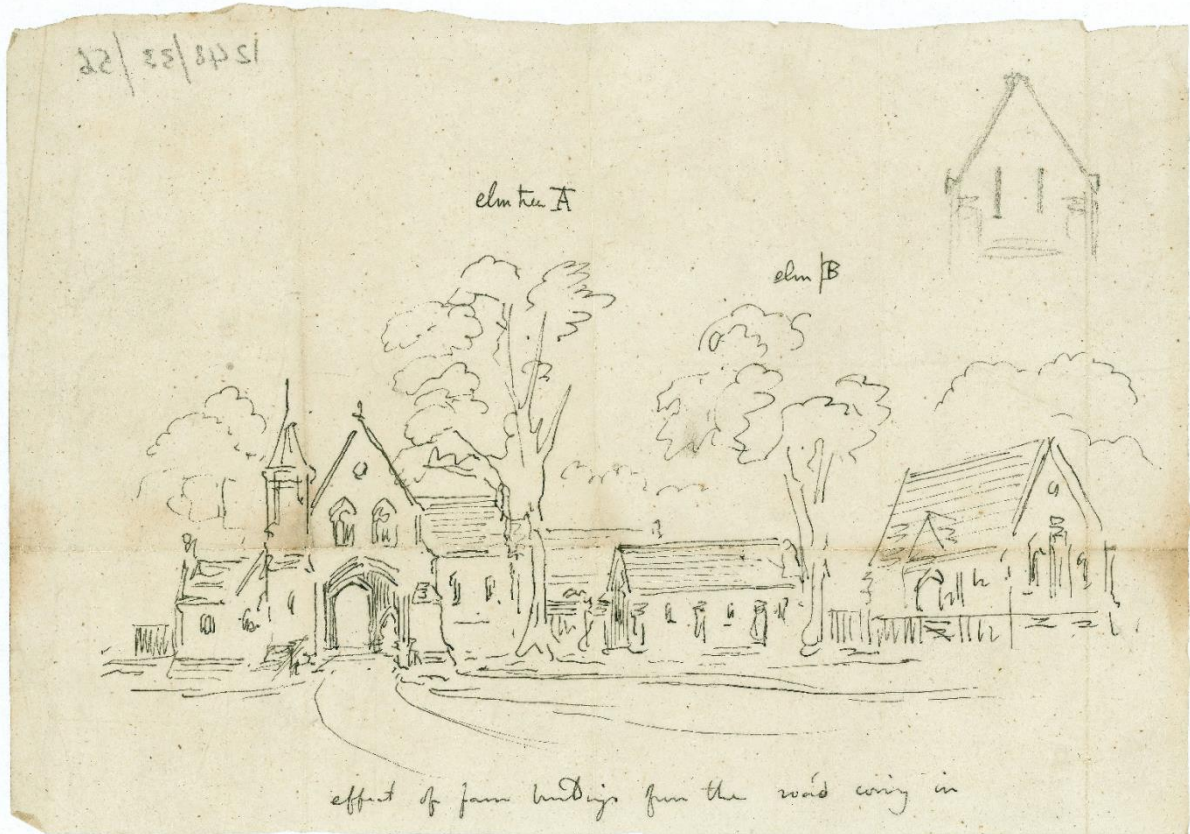 1248/33/56
elm tree A
elm B
effect of farm buildings from the road coming in